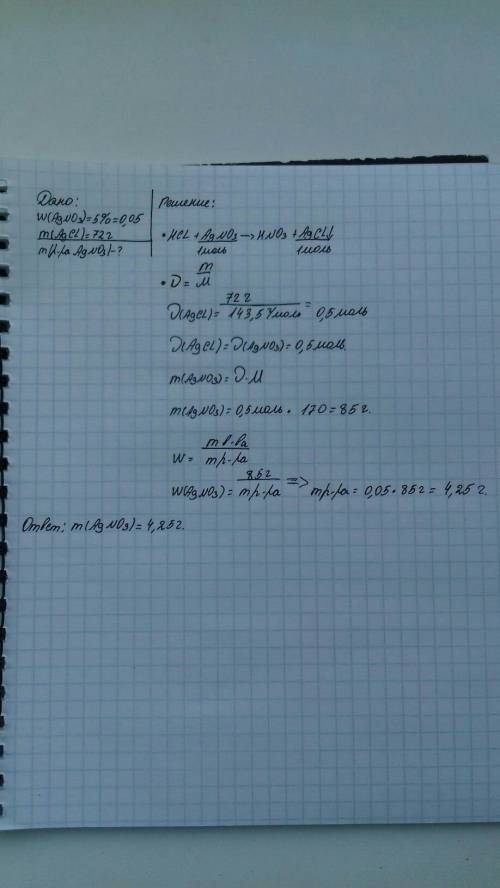 Дано:
W(AgNO3)=5%=0,05
m(AgCl)=72г
m(р-ра AgNO3)-?
Решение:
• HCl + AgNO3 → HNO3 + AgCl↓
1моль 1моль
• ν = m/M
ν(AgCl) = 72г / 143,5г/моль = 0,5 моль
ν(AgCl) = ν(AgNO3) = 0,5 моль.
m(AgNO3) = ν·M
m(AgNO3) = 0,5моль • 170 = 85г.
W = m в-ва / m р-ра
W(AgNO3) = 85г / m р-ра => m р-ра = 0,05 • 85г = 4,25г.
Ответ: m(AgNO3) = 4,25г.